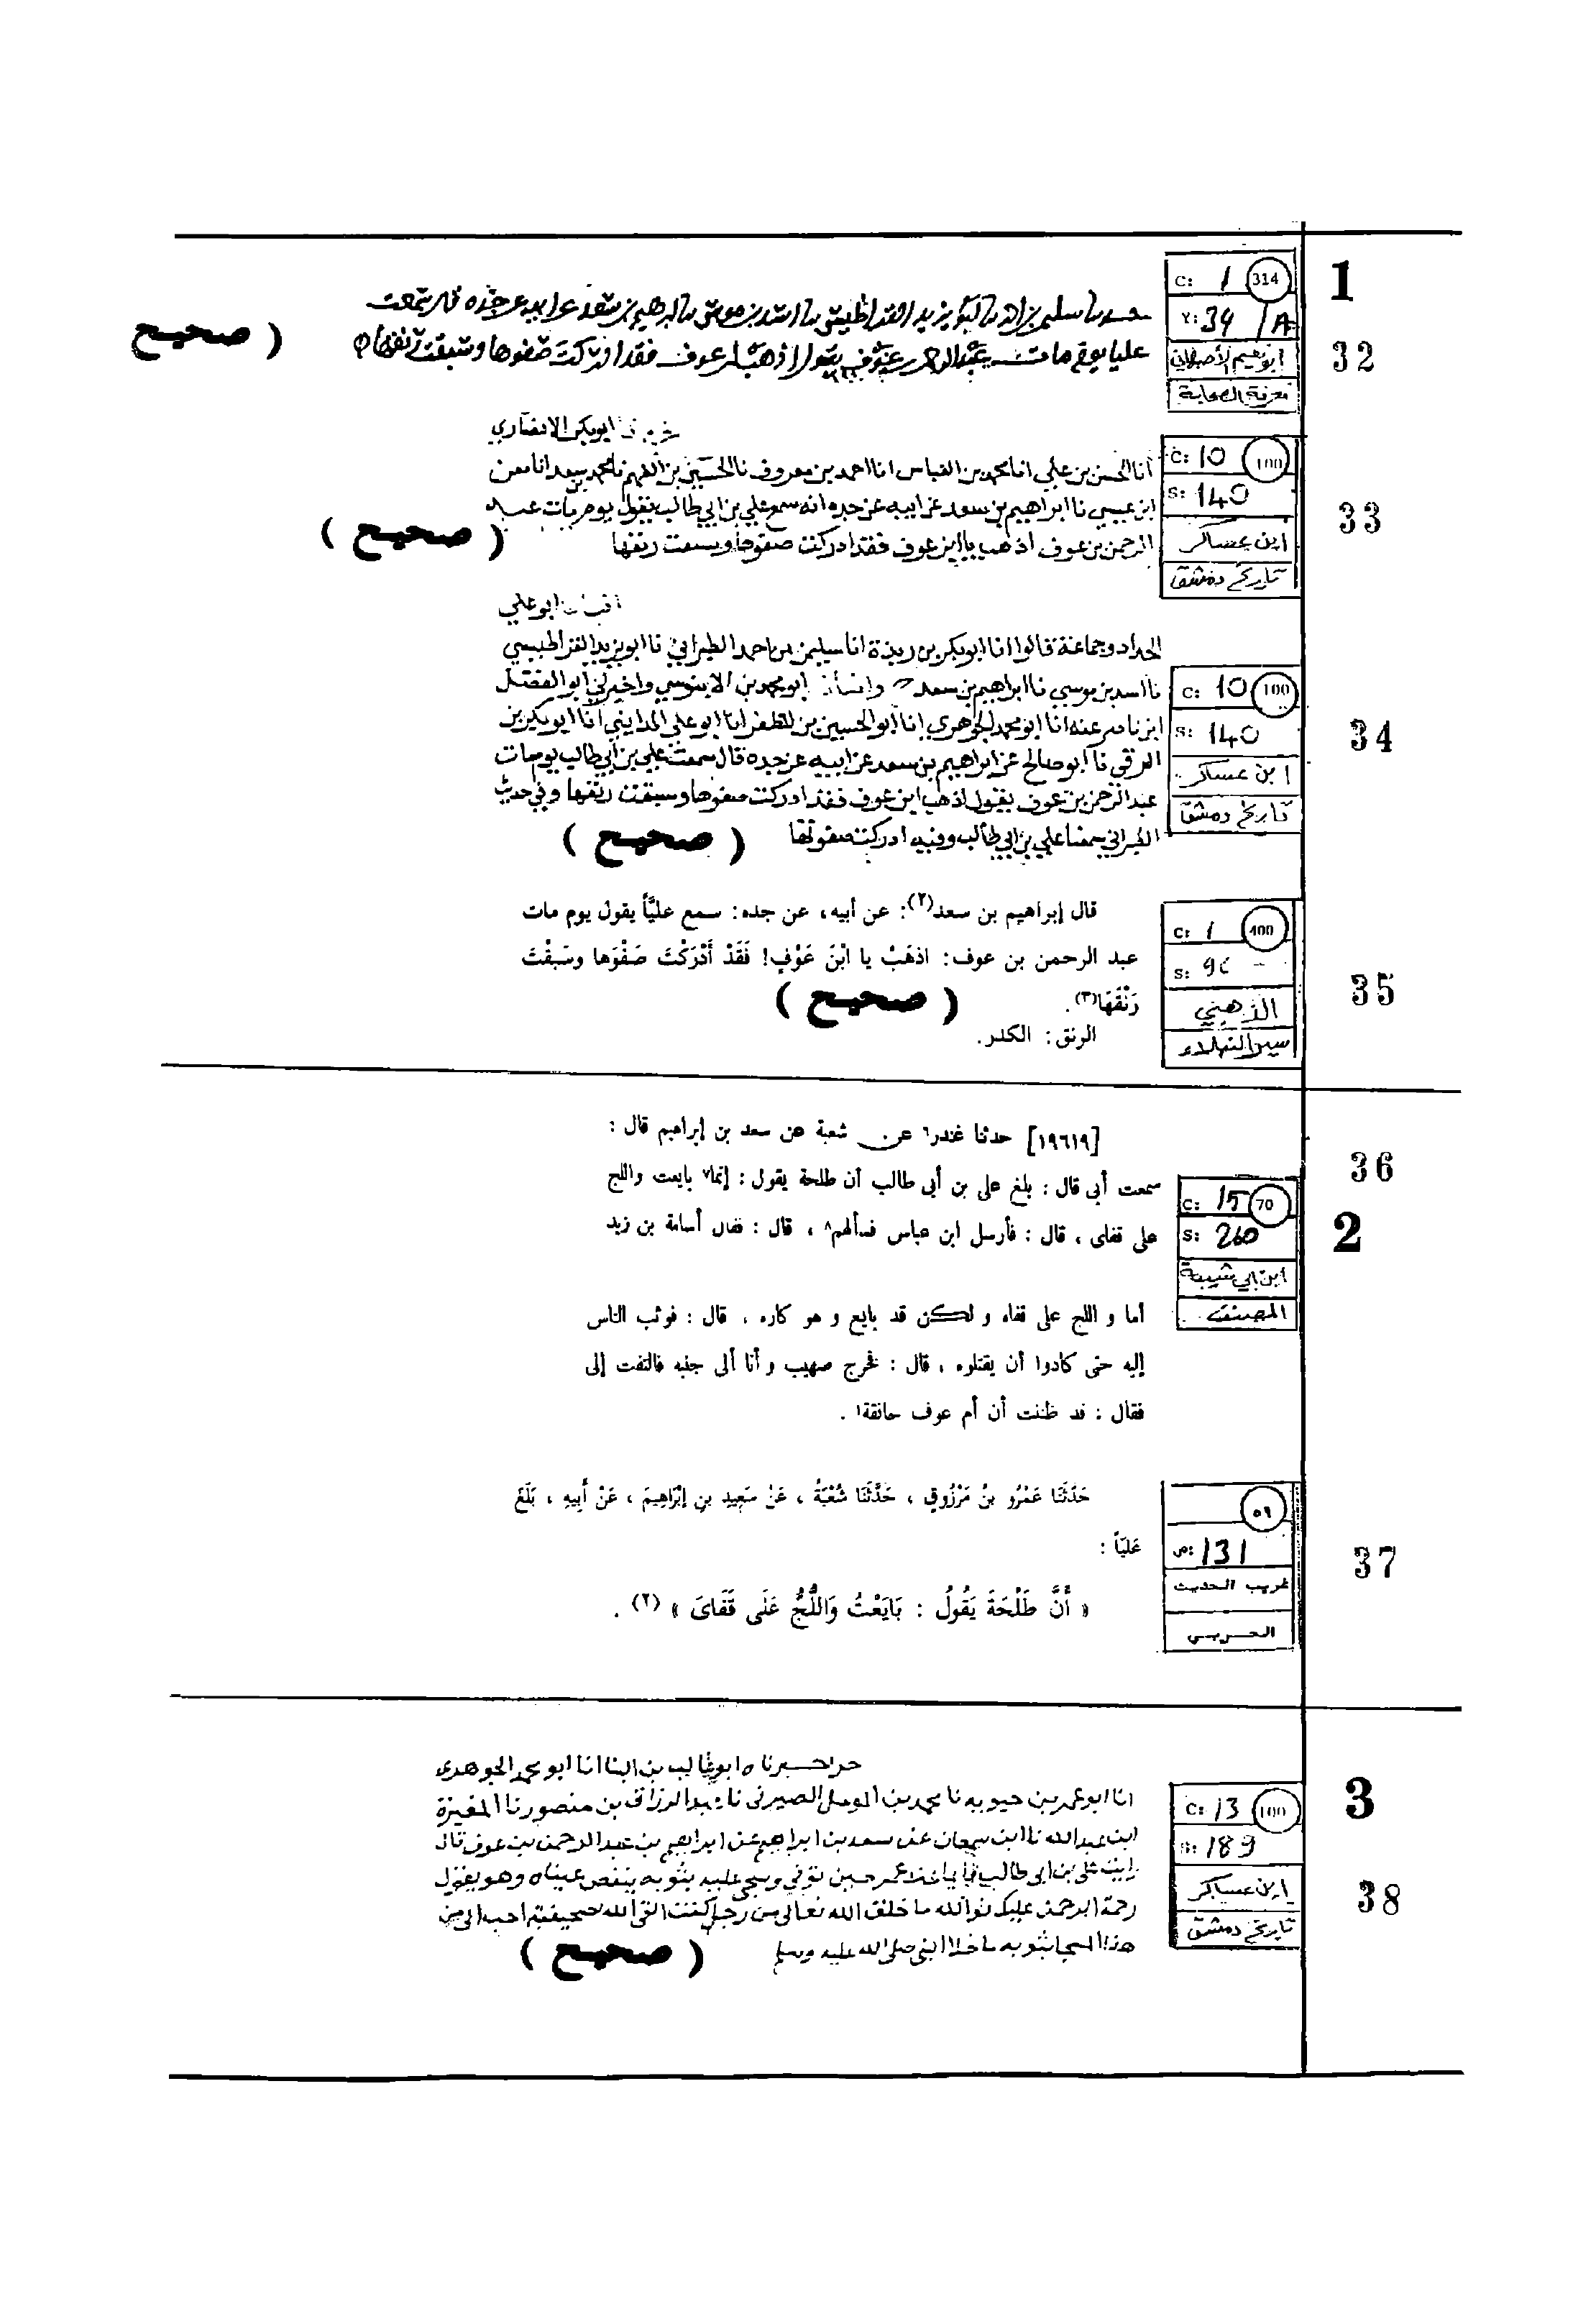 1
C: 1 314
Y: 34 / A
ابو نعيم الأصبهاني
معرفة الصحابة
32
سليمن بن احمد ابو يزيد القراطيسي اسد بن موسى ابراهيم بن سعد عن ابيه عن جده قال سمعت
عليا يوم مات عبد الرحمن بن عوف يقول اذهب ابن عوف فقد ادركت صفوها وسبقت رنقها
( صحيح )
33
C: 10 100
S: 140
ابن عساكر
تاريخ دمشق
ابوبكر الانصاري
انا الحسن بن علي انا محمد بن العباس انا احمد بن معروف نا الحسين بن الفهم نا محمد بن سعد انا معن
ابن عيسي نا ابراهيم بن سعد عن ابيه عن جده انه سمع علي بن ابي طالب يقول يوم مات عبد
الرحمن بن عوف اذهب يا ابن عوف فقد ادركت صفوها وسبقت رنقها
( صحيح )
34
C: 10 100
S: 140
ابن عساكر
تاريخ دمشق
ابو علي
الحداد وجماعة قالوا انا ابو بكر بن ريذة انا سليمن بن احمد الطبراني نا ابو يزيد القراطيسي
نا اسد بن موسي نا ابراهيم بن سعد ح وانبأنا ابو محمد بن الابنوسي واخبرني ابو الفضل
ابن ناصر عنه انا ابو محمد الجوهري انا ابو الحسين بن المظفر انا ابو علي المدايني انا ابو بكر بن
البرقي نا ابو صالح عن ابراهيم بن سعد عن ابيه عن جده قال سمعت علي بن ابي طالب يوم مات
عبد الرحمن بن عوف يقول اذهب ابن عوف فقد ادركت صفوها وسبقت رنقها وفي حديث
الطبراني سمعنا علي بن ابي طالب وفيه ادركت صفوتها
( صحيح )
35
C: 1 100
S: 9
الذهبي
سير النبلاء
قال إبراهيم بن سعد(٢): عن أبيه، عن جده: سمع عليًّا يقول يوم مات
عبد الرحمن بن عوف: اذهَبْ يا ابْنَ عَوْفٍ! فَقَدْ أَدْرَكْتَ صَفْوَها وسَبقْتَ
رَنْقَهَا(٣).
( صحيح )
الرنق: الكدر.
36
2
C: 15 70
S: 260
ابن ابي شيبة
المصنف
[١٩٦١٩] حدثنا غندر٦ عن شعبة عن سعد بن إبراهيم قال :
سمعت أبي قال : بلغ على بن أبى طالب أن طلحة يقول : إنما٧ بايعت واللج
على قفاى ، قال : فأرسل ابن عباس فسألهم٨ ، قال : فقال أسامة بن زيد
أما و اللج على قفاه و لكن قد بايع و هو كاره ، قال : فوثب الناس
إليه حتى كادوا أن يقتلوه ، قال : فخرج صهيب و أنا ألى جنبه فالتفت إلى
فقال : قد ظننت أن أم عوف حانقة١ .
37
٥٩
ص: 131
غريب الحديث
الحربي
حَدَّثَنَا عَمْرُو بنُ مَرْزُوقٍ ، حَدَّثَنَا شُعْبَةُ ، عَنْ سَعِيدِ بنِ إبْرَاهِيمَ ، عَنْ أَبِيهِ ، بَلَغَ
عَليّاً :
« أَنَّ طَلْحَةَ يَقُولُ : بَايَعْتُ وَاللُّجُّ عَلَى قَفَاىَ » (٢) .
3
C: 13 100
S: 189
ابن عساكر
تاريخ دمشق
38
ابو غالب بن البنا انا ابو محمد الجوهري
انا ابو عمر بن حيويه نا محمد بن الصيرفي نا عبد الرزاق بن منصور نا المغيرة
ابن عبد الله نا ابن سمعان عن سعد بن ابراهيم عن ابراهيم بن عبد الرحمن بن عوف قال
رايت علي بن ابي طالب عمر حين توفي وسجي عليه بثوبه عيناه وهو يقول
رحمة الله عليك فوالله ما خلف الله تعالى من رجل كنت القى الله بصحيفته احب الي من
هذا المسجا بثوبه ما خلا النبي صلى الله عليه وسلم
( صحيح )